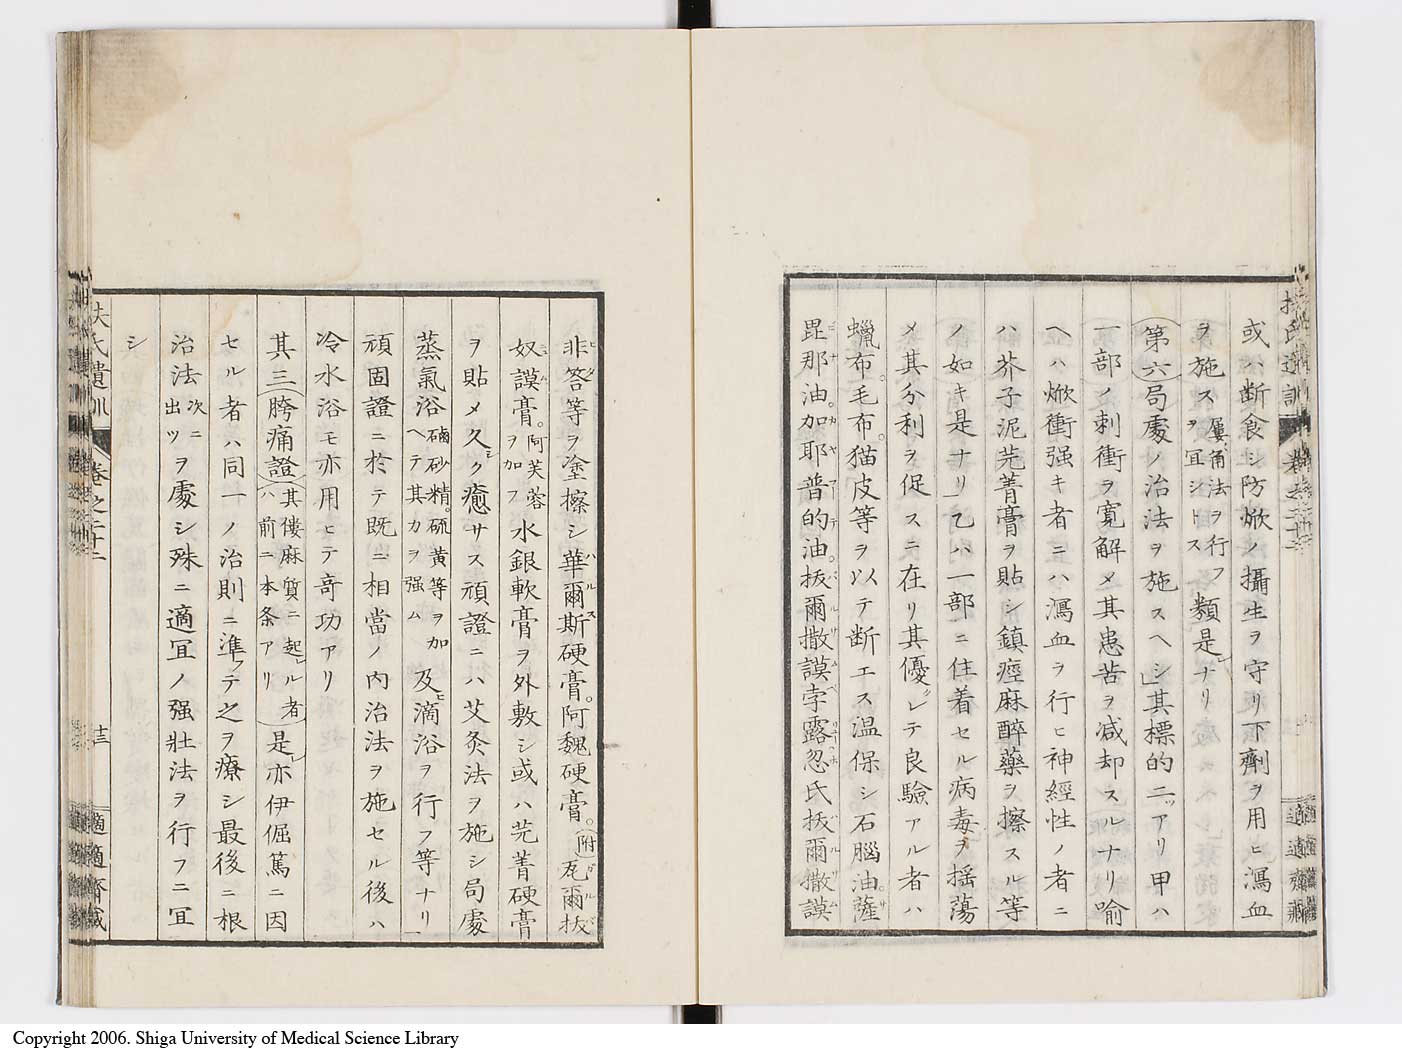 或ハ断食シ防焮ノ攝生ヲ守リ下劑ヲ用ヒ瀉血
ヲ施ス屢角法ヲ行フヲ冝シトス類是レナリ
第六局處ノ治法ヲ施スヘシ其標的二ツアリ甲ハ
一部ノ刺衝ヲ寛解メ其患苦ヲ减却スルナリ喻
ヘハ焮衝强キ者ニハ瀉血ヲ行ヒ神經性ノ者ニ
ハ芥子泥芫菁膏ヲ貼シ鎮痙麻醉藥ヲ擦スル等
ノ如キ是ナリ乙ハ一部ニ住着セル病毒ヲ揺蕩
メ其分利ヲ促スニ在リ其優レテ良驗アル者ハ
蠟布。毛布。猫皮等ヲ以テ断エス温保シ石腦油薩
毘那油加耶普的油拔爾撒謨孛露忽氏拔爾撒謨
非答等ヲ塗擦シ華爾斯硬膏。阿魏硬膏。附瓦爾抜
奴謨膏。阿芙蓉ヲ加フ水銀軟膏ヲ外敷シ或ハ芫菁硬膏
ヲ貼メ久シク癒サス頑證ニハ艾灸法ヲ施シ局處
蒸氣浴磠砂精。硫黄等ヲ加ヘテ其力ヲ强ム及ヒ滴浴ヲ行フ等ナリ
頑固證ニ於テ既ニ相當ノ内治法ヲ施セル後ハ
冷水浴モ亦用ヒテ奇功アリ
其三胯痛證其僂麻質ニ起ル者ハ前ニ本条アリ是レ亦伊倔篤ニ因
セル者ハ同一ノ治則ニ準テ之ヲ療シ最後ニ根
治法次ニ出ツヲ處シ殊ニ適冝ノ强壯法ヲ行フニ冝
シ
扶氏遺訓 卷之二十二 十三 適適齋藏